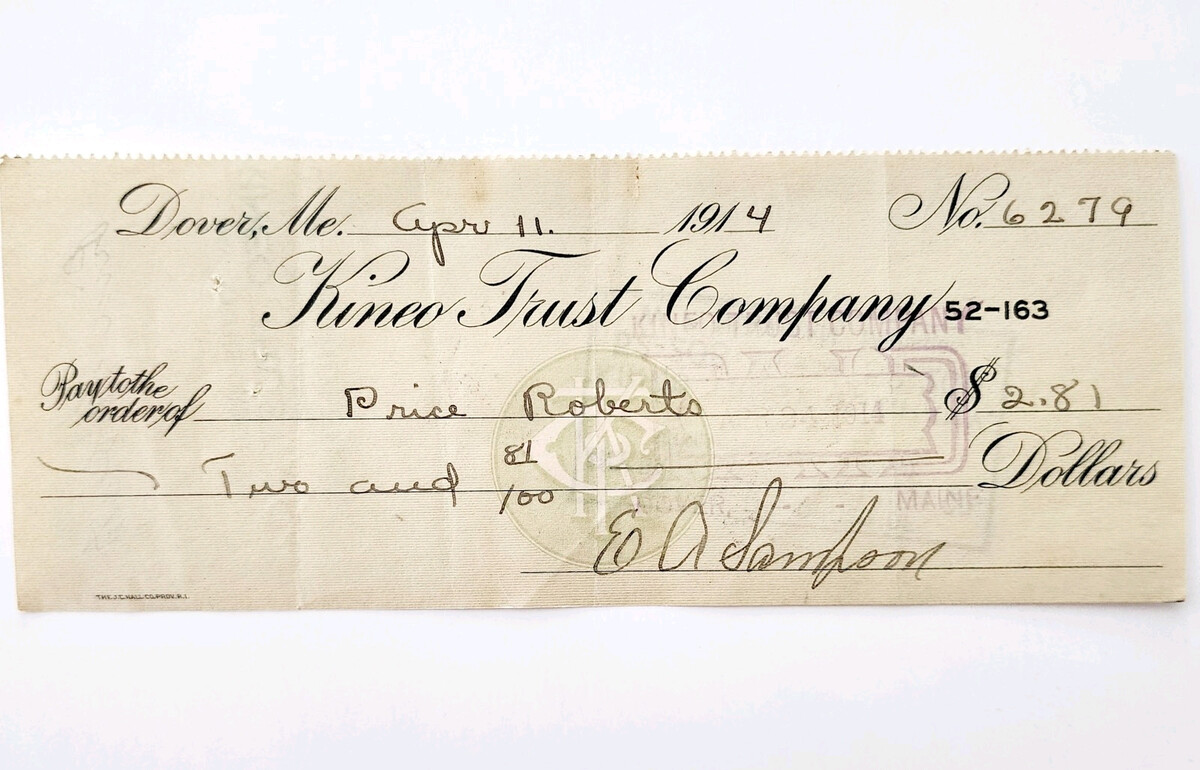 Dover, Me. Apr 11. 1914 No. 6279
Kineo Trust Company 52-163
Pay to the order of Price Roberts $ 2.81
Two and 81/100 Dollars
E A Sampson
KINEO TRUST COMPANY
MAINE
THE J.C. HALL CO. PROV. R.I.